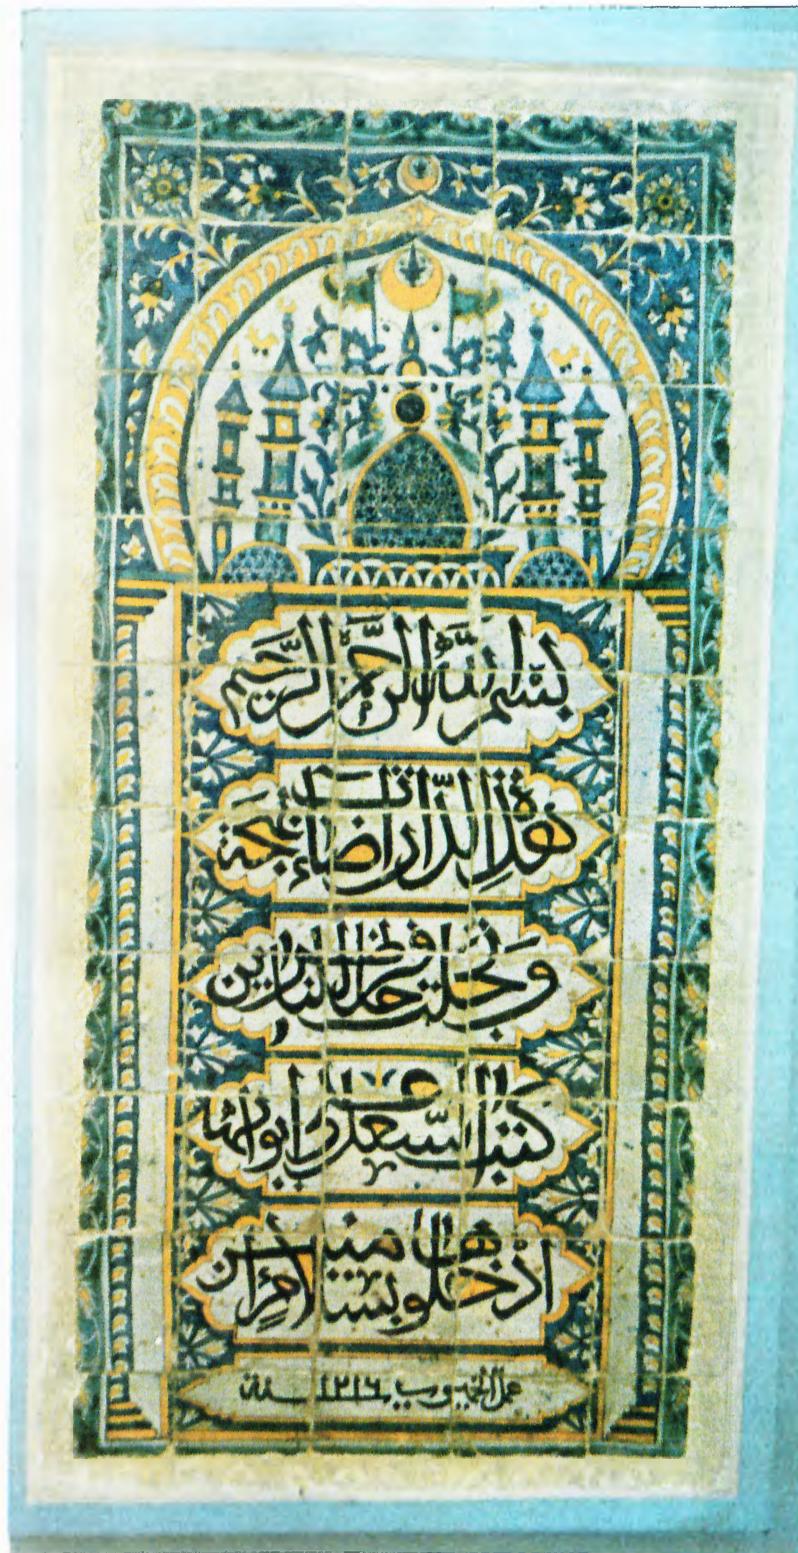 بسم الله الرحمن الرحيم
هذه الدار اضاءت بهجة
وتجلت فرحا للناظرين
كتب السعد على ابوابها
ادخلوها بسلام امنين
عمل سنة ١٢١٦